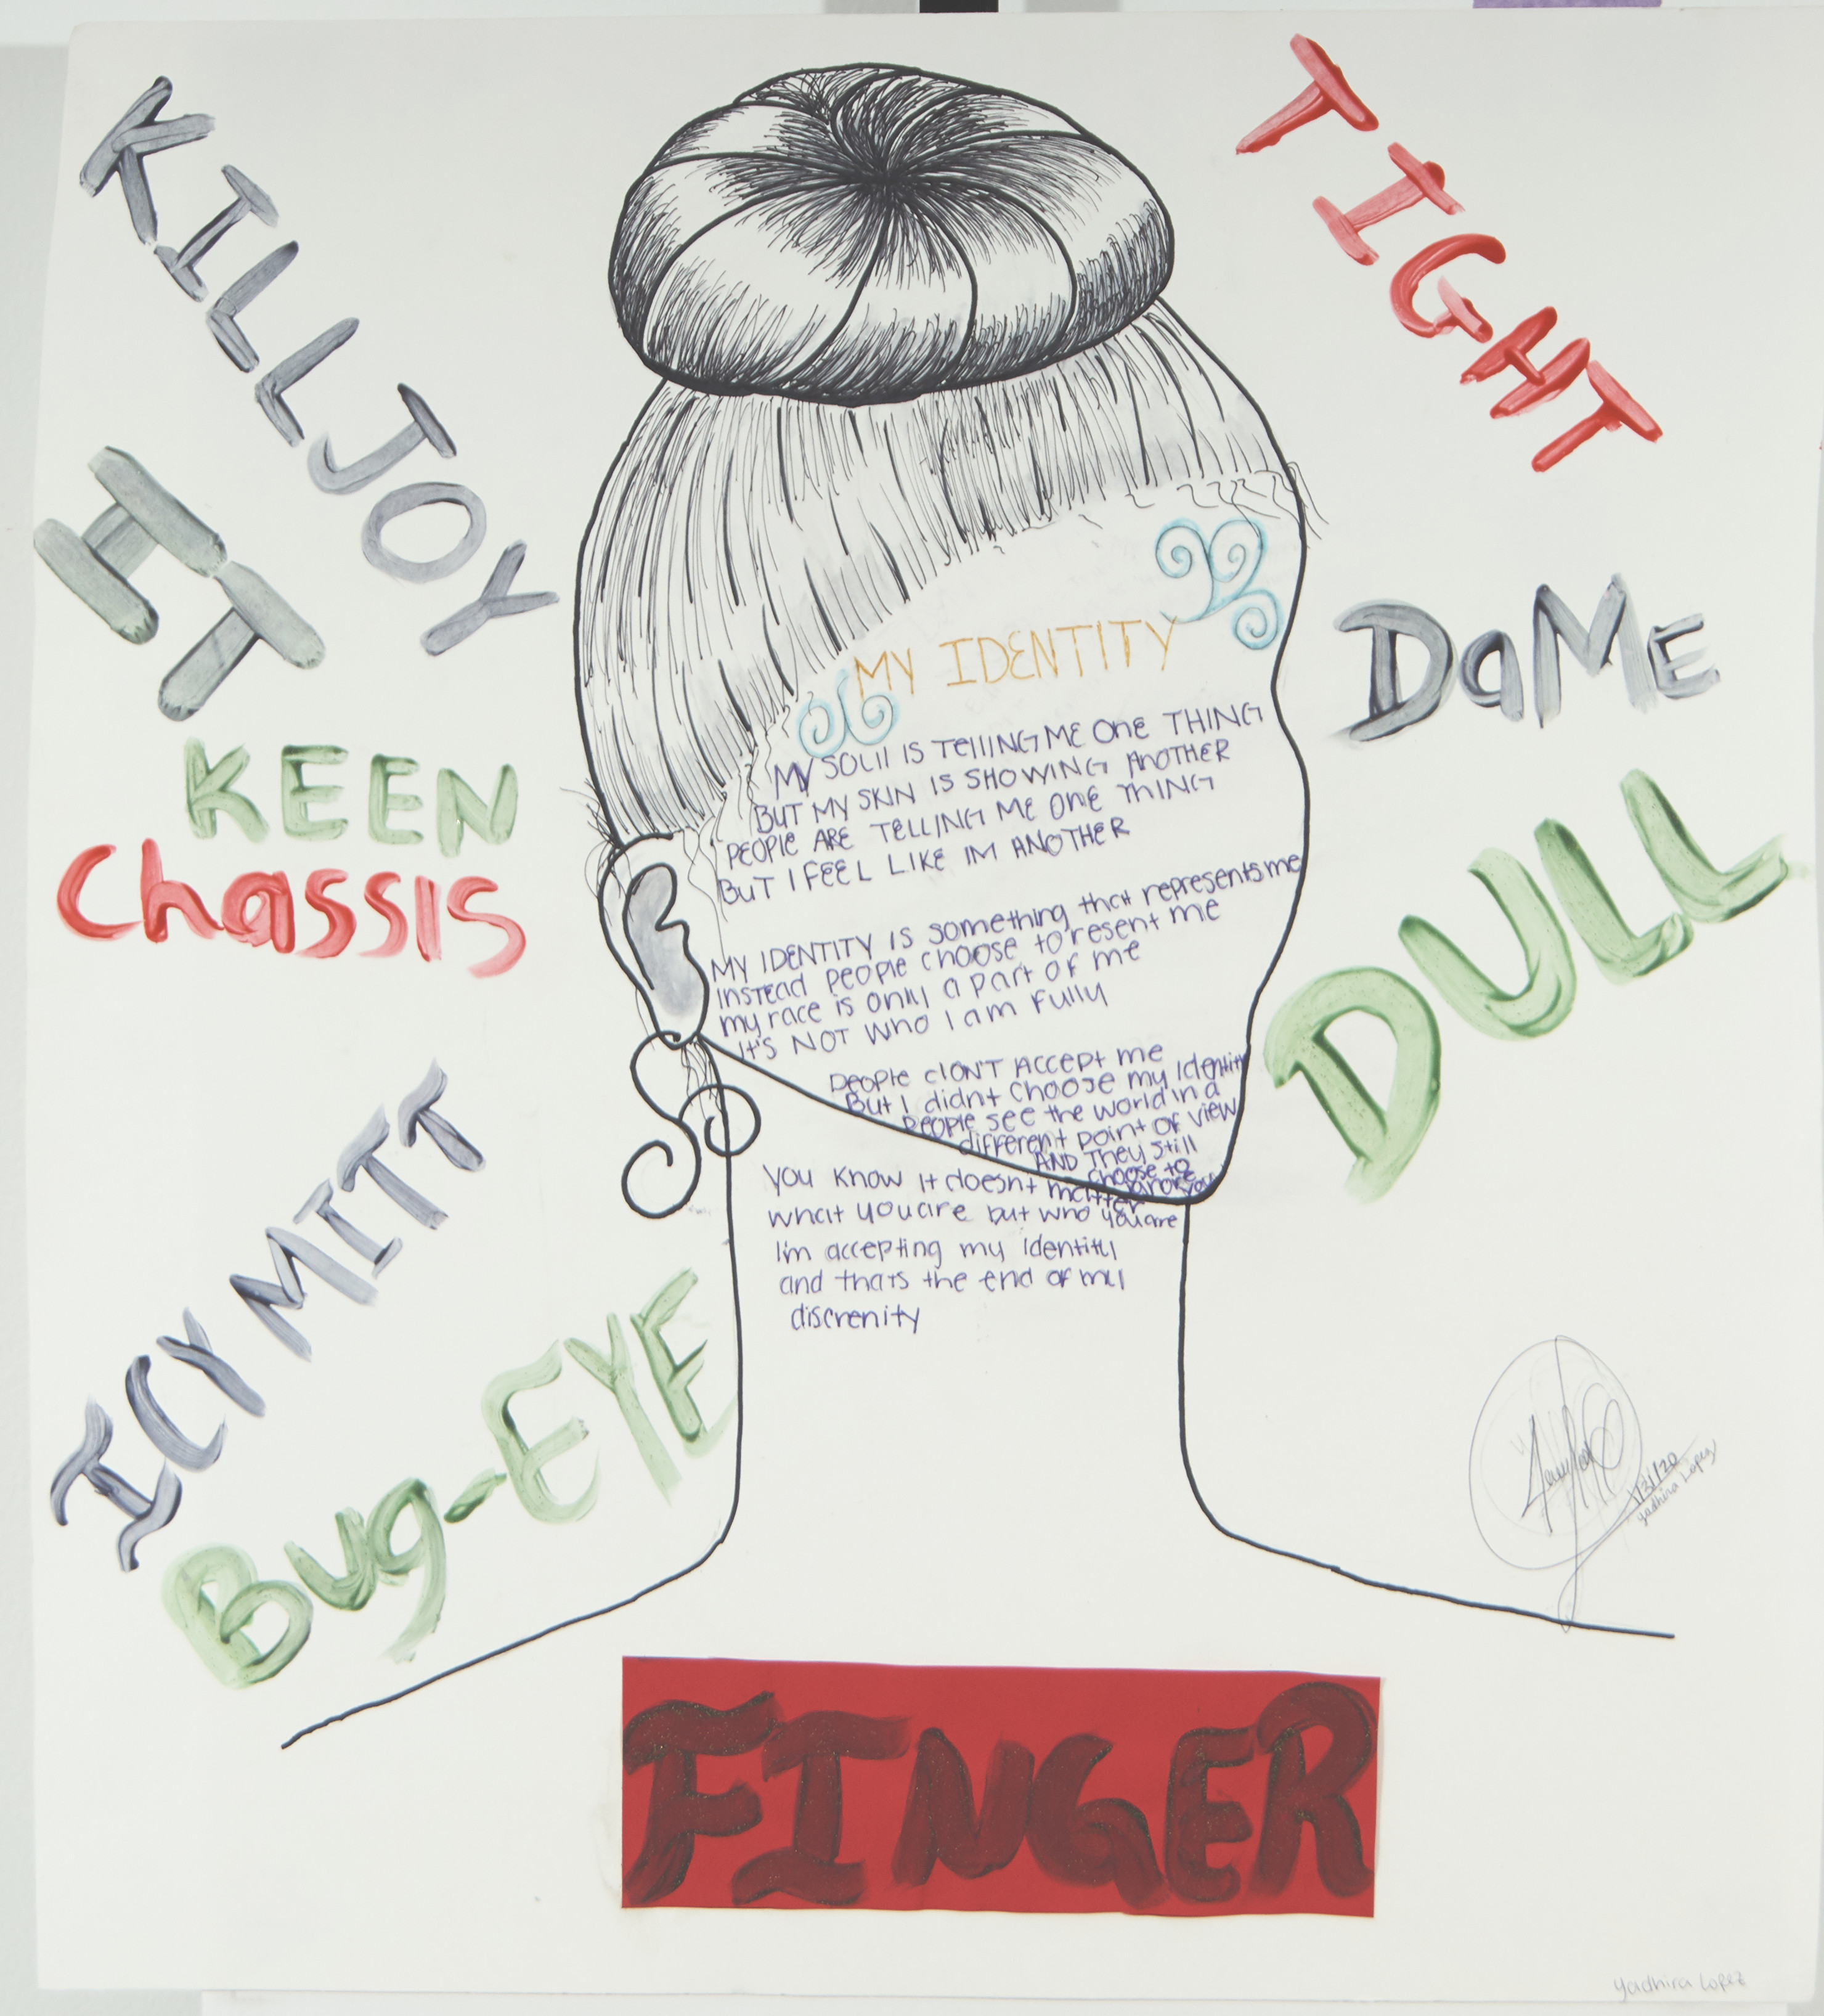 KILLJOY
TIGHT
HT
DaME
KEEN
Chassis
DULL
ICY MITT
Bug-EYE
MY IDENTITY
MY SOUl IS TEllING ME One THING
BUT MY SKIN IS SHOWING ANOTHER
PEOPlE ARE TELLING ME ONE THING
BuT I FEEL LIKE IM ANOTHER
MY IDENTITY IS something that represents me
INSTEAd PEOPlE choose to resent me
my race is only a part of me
It's NOT WHO I am Fully
PEOPlE dON'T ACCEPt me
But I didnt choose my Identity
People see the world in a
different point of view
AND They still
choose to
ignore you
You know it doesnt matter
what you are but who you are
I'm accepting my identity
and thats the end of my
discrenity
1/31/20
yadhira Lopez
FINGER
yadhira Lopez